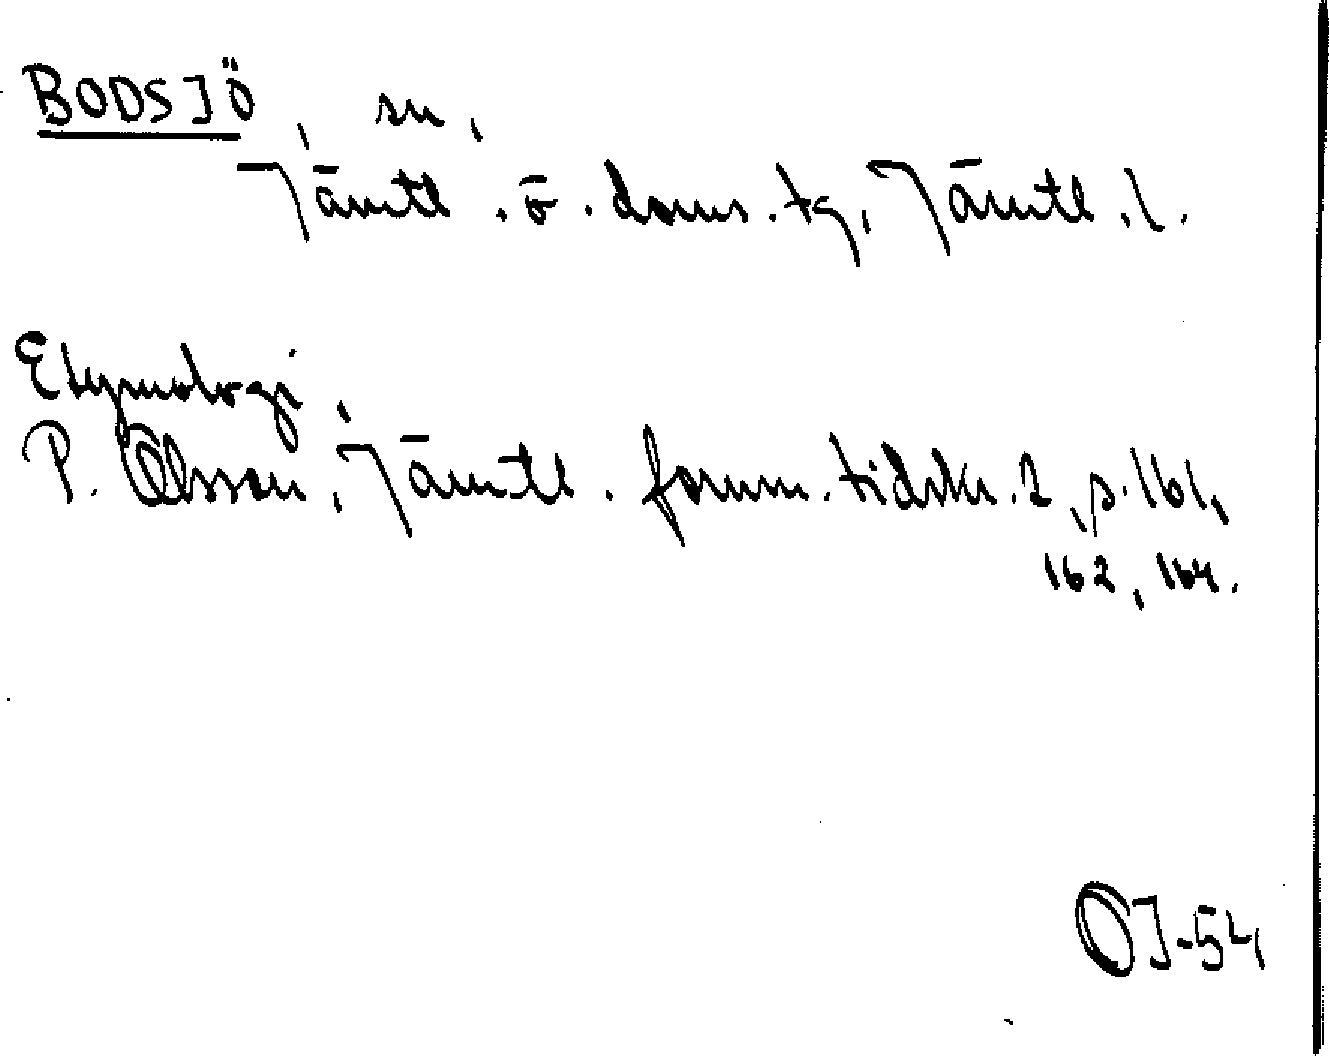 BODSJÖ, sn,
Jämtl. ö. doms. tg, Jämtl. l.
Etymologi,
P. Olsson, Jämtl. fornm. tidskr. 2, s. 161,
162, 164.
OJ-54